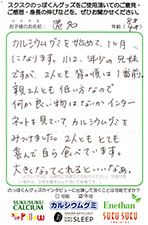 スクスクのっぽくんグッズをご使用頂いてのご意見・
ご感想・身長の伸びなどを、ぜひお聞かせください。
お子様のお名前:
年齢( 8才
4才)
カルシウムグミを始めて、1ヶ月
になります。小2、年少の兄妹
ですが、2人とも背の順は1番前。
親2人とも低い方なので
何か良い物はないかインター
ネットを見ていて、カルシウムグミを
みつけました。2人とも とても
喜んで自ら食べています。
大きくなってくれると いいなあ。
のっぽくんグッズのインタビューに出演して頂くことは可能ですか?
可能 不可能
SUKUSUKU
CALCIUM
カルシウムグミ
Enethan
The Pillow
SLEEP
SUKUSUKU